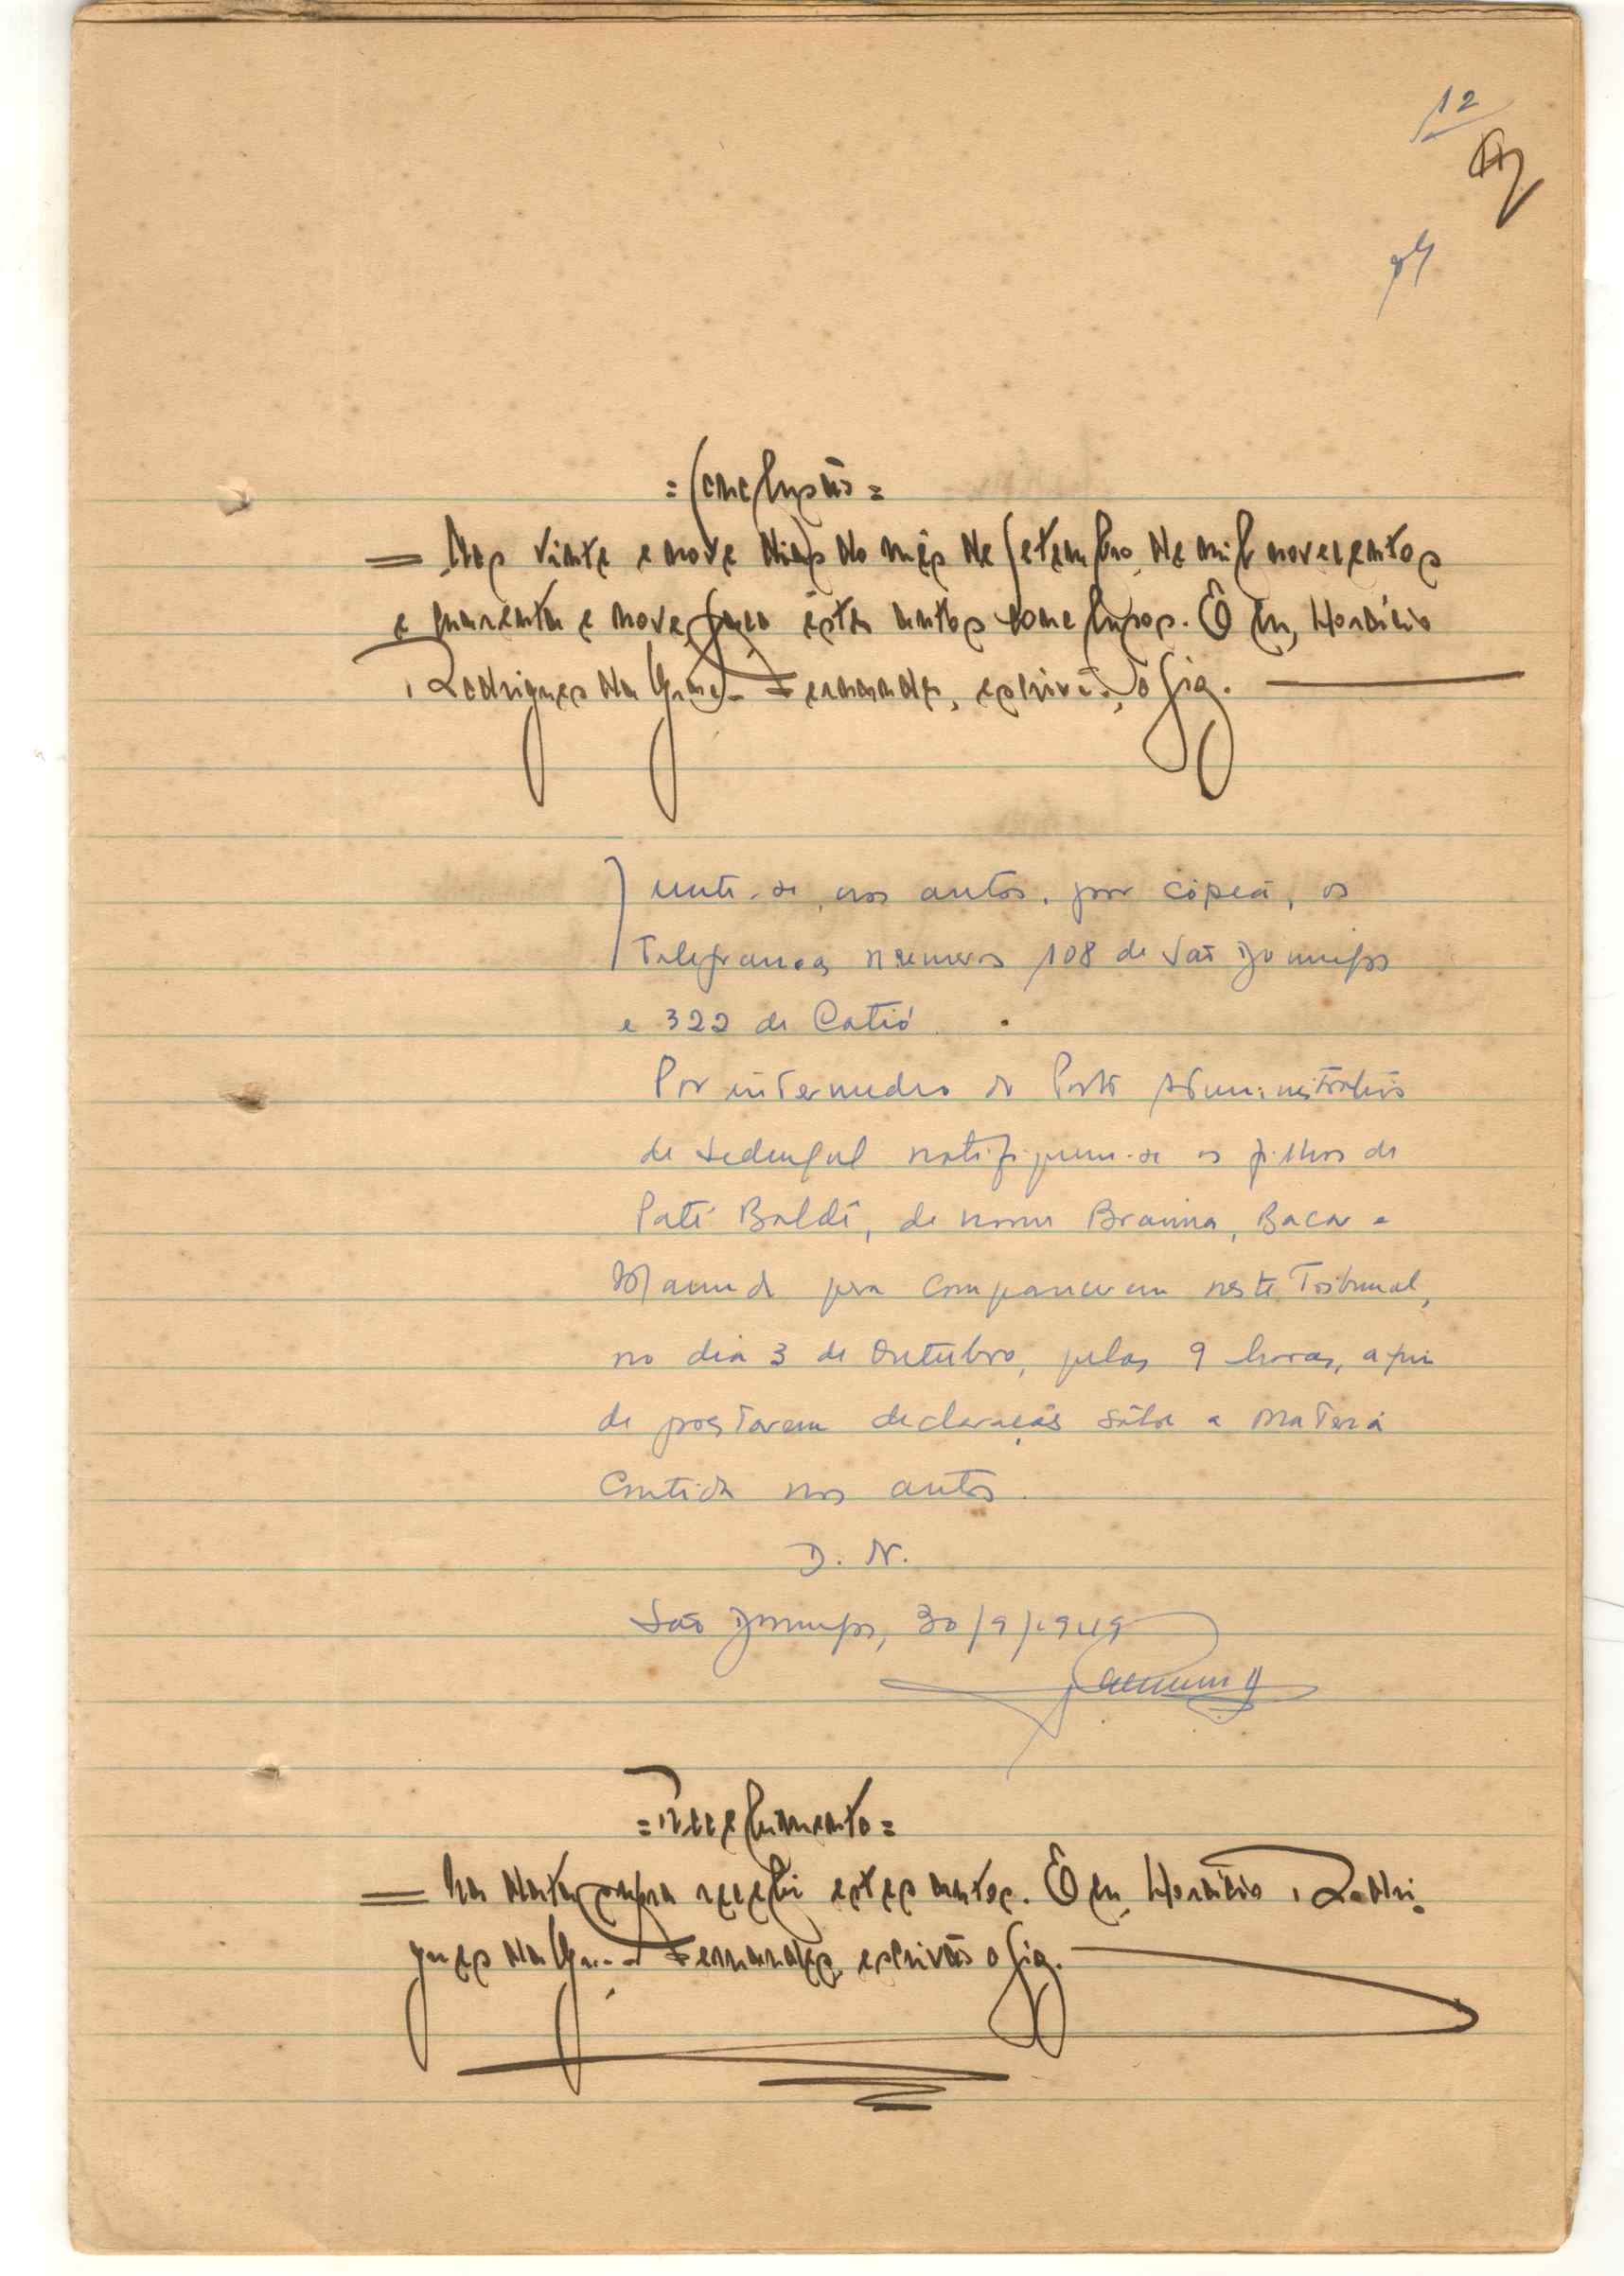 12
= Conclusão =
= Aos vinte e nove dias do mês de Setembro de mil novecentos
e quarenta e nove, faço êstes autos conclusos. E eu, Horácio
Rodrigues da Fernandes, escrivão, o fiz.
Junte-se aos autos, por cópia, os
Telegramas numeros 108 de São Domingos
e 322 de Catió.
Por intermedio do Posto Administrativo
de Sedengal notifiquem-se os filhos de
Pati Baldé, de nome Braima, Bacar e
para comparecerem neste Tribunal,
no dia 3 de Outubro, pelas 9 horas, a fim
de prestarem declarações sôbre a materia
contida nos autos.
D. N.
São Domingos, 30/9/1949
= Recebimento =
= Na data supra recebi estes autos. E eu, Horácio Rodri-
gues da Fernandes, escrivão o fiz.